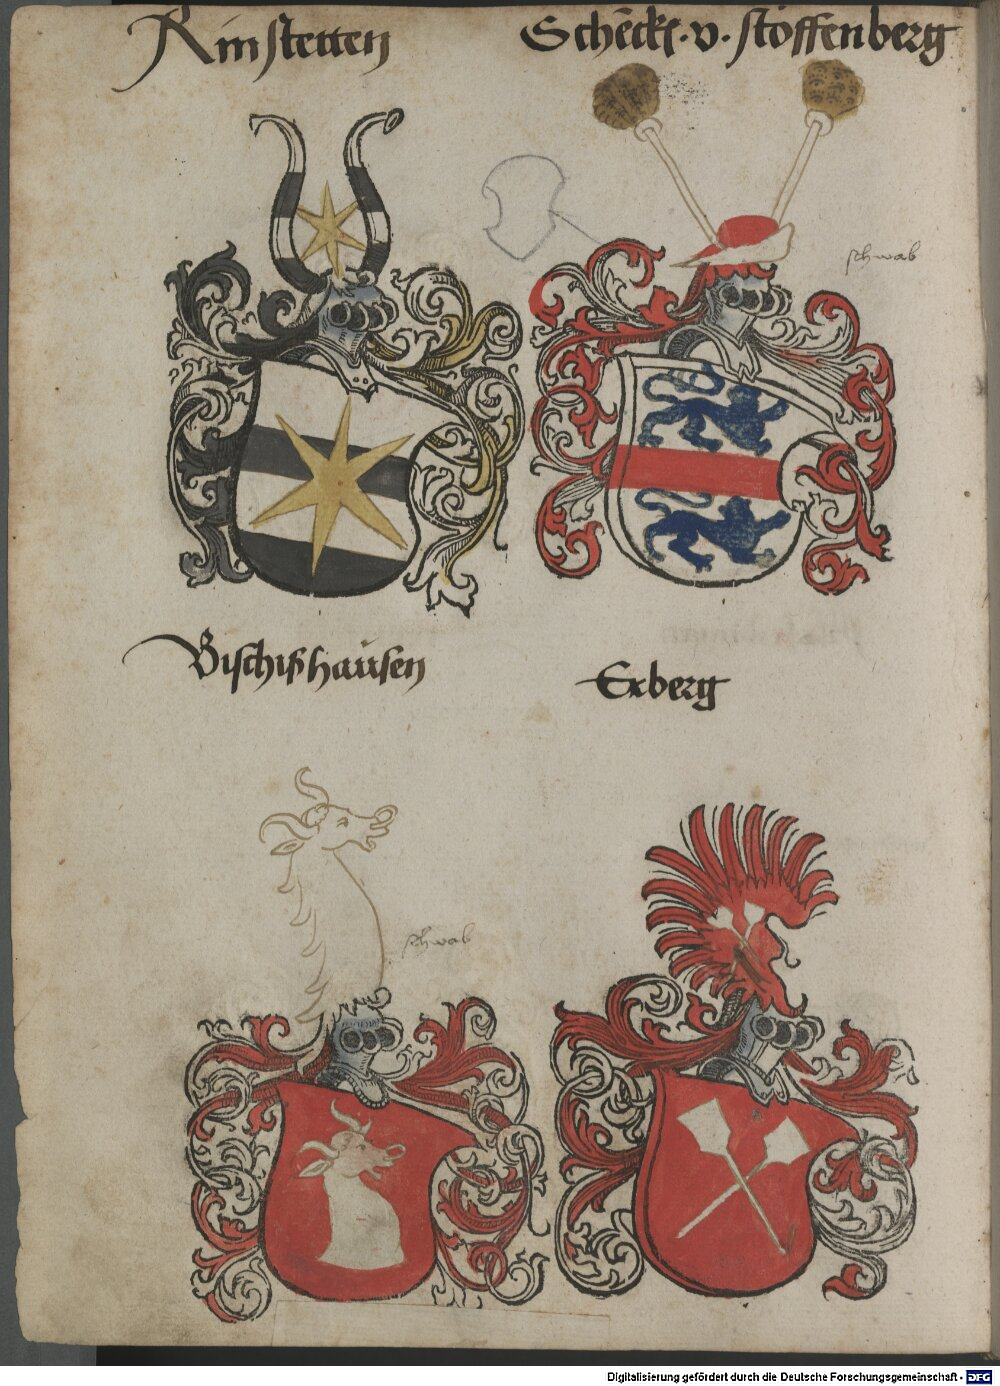 Rinstetten
Schēck. v. stoffenberg
schwab
Bischißhaüsen
Exberg
schwab
Digitalisierung gefördert durch die Deutsche Forschungsgemeinschaft - DFG